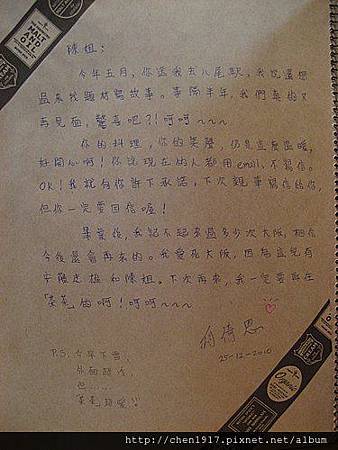 MALT
AND
OIL
陳姐：
今年五月，你送我去八尾駅，我說還想
再來找題材寫故事。事隔半年，我們真的又
再見面，驚喜吧？！呵呵~~~
你的料理，你的笑聲，仍是這麼溫暖，
好開心啊！你說現在的人都用email，不寫信。
OK！我就向你許下承諾，下次親筆寫信給你，
但你一定要回信喔！
畢業後，我記不起來過多少次大阪，相信
今後還會再來的。我愛死大阪，因為這兒有
和陳姐。下次再來，我一定要再住
啊！呵呵~~~
25-12-2010
P.S. 今年下雪，
外面超冷，
但……
超暖！！
Organic
http://chen1917.pixnet.net/album